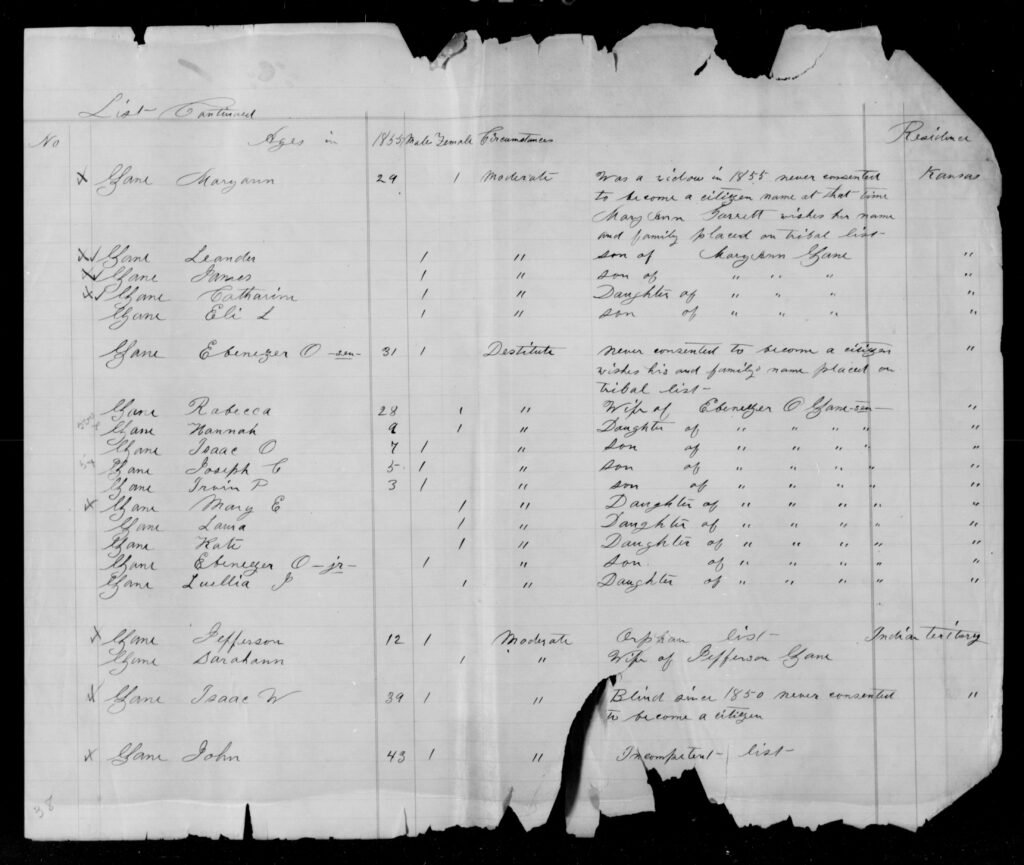 List Continued
No Ages in 1855 Male Female Circumstances Residence
x Zane Maryann 29 1 Moderate Was a widow in 1855 never consented Kansas
to become a citizen name at that time
Mary Ann Garrett wishes her name
and family placed on tribal list
x Zane Leander 1 " son of Mary Ann Zane "
x Zane James 1 " son of " " " "
x Zane Catharine 1 " Daughter of " " " "
Zane Eli L 1 " son of " " " "
Zane Ebenezer O -sen- 31 1 Destitute never consented to become a citizen "
wishes his and family name placed on
tribal list
Zane Rabecca 28 1 " Wife of Ebenezer O Zane-sen- "
Zane Hannah 9 1 " Daughter of " " " "
Zane Isaac O 7 1 " son of " " " "
Zane Joseph C 5 1 " son of " " " "
Zane Irvin P 3 1 " son of " " " "
x Zane Mary E 1 " Daughter of " " " "
Zane Laura 1 " Daughter of " " " "
Zane Kate 1 " Daughter of " " " "
Zane Ebenezer O -jr- 1 " son of " " " "
Zane Luellia J 1 " Daughter of " " " "
x Zane Jefferson 12 1 Moderate Orphan list Indian territory
Zane Sarahann 1 " Wife of Jefferson Zane
x Zane Isaac W 39 1 " Blind since 1850 never consented "
to become a citizen
x Zane John 43 1 " Incompetent list
38